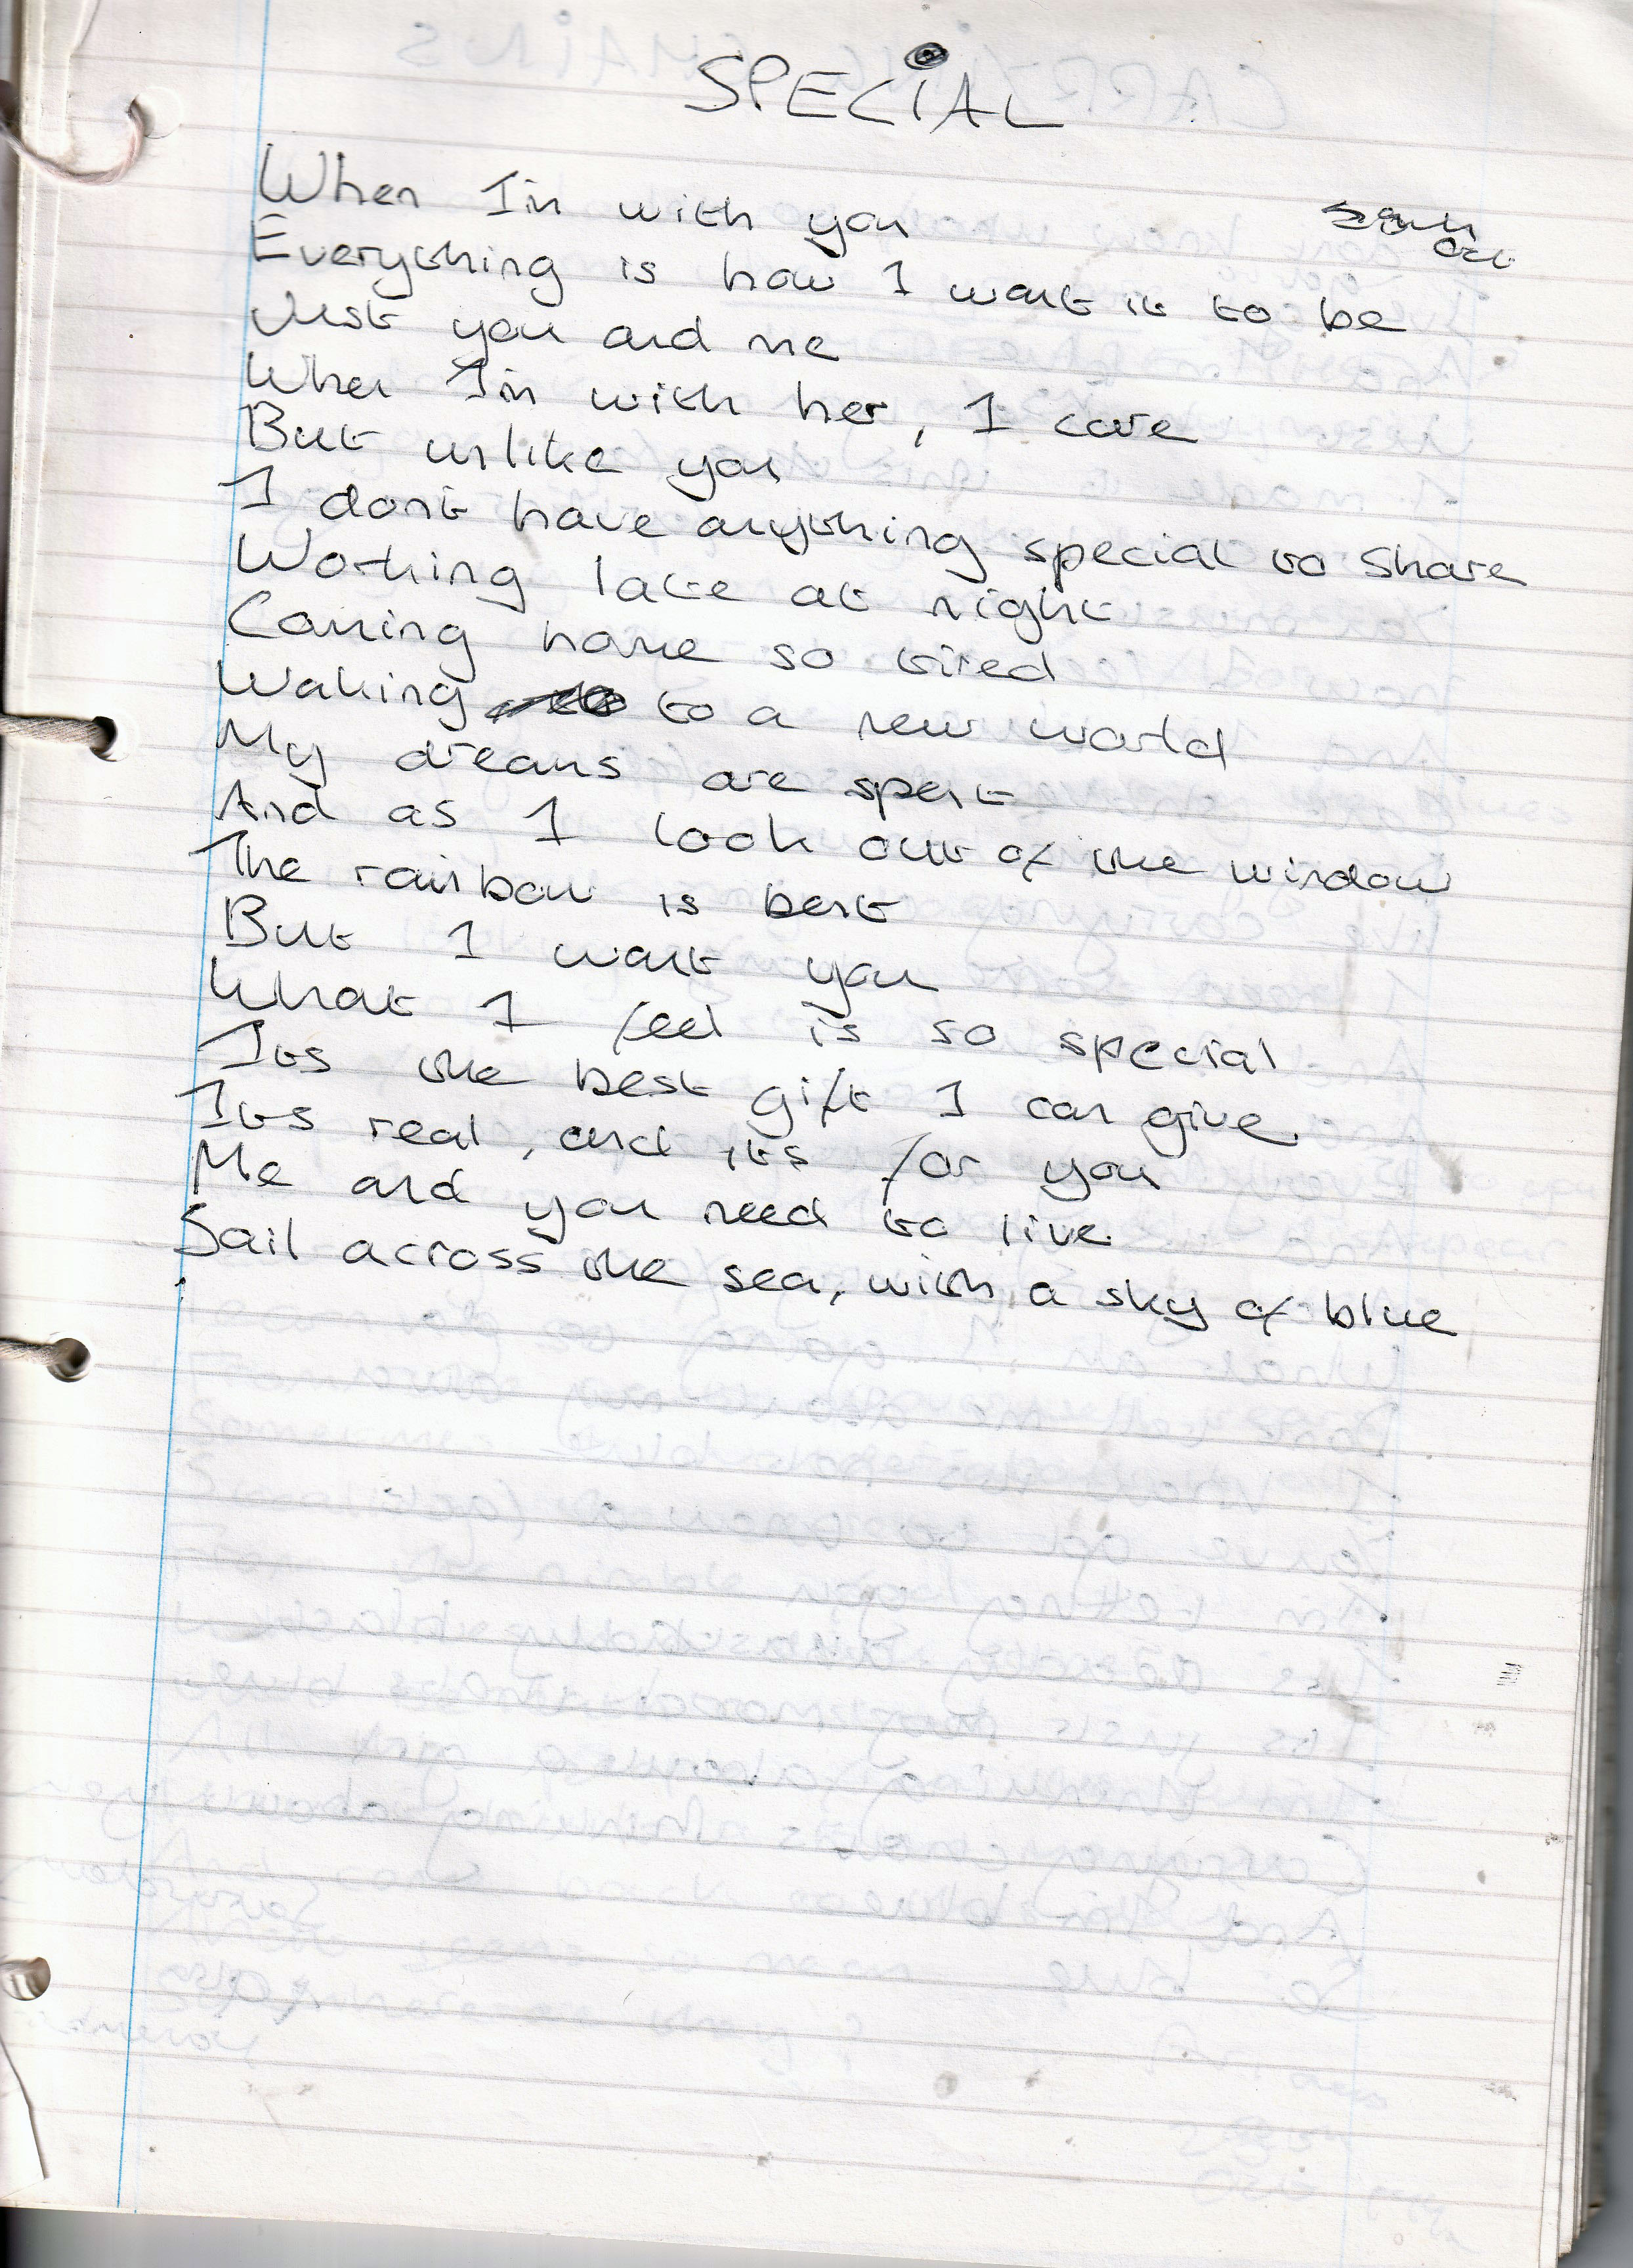 SPECIAL
When I'm with you
Everything is how I want it to be
Just you and me
When I'm with her, I care
But unlike you
I don't have anything special to share
Working late at night
Coming home so tired
Waking to a new world
My dreams are spent
And as I look out of the window
The rainbow is bent
But I want you
What I feel is so special
Its the best gift I can give
Its real, and its for you
Me and you need to live
Sail across the sea, with a sky of blue